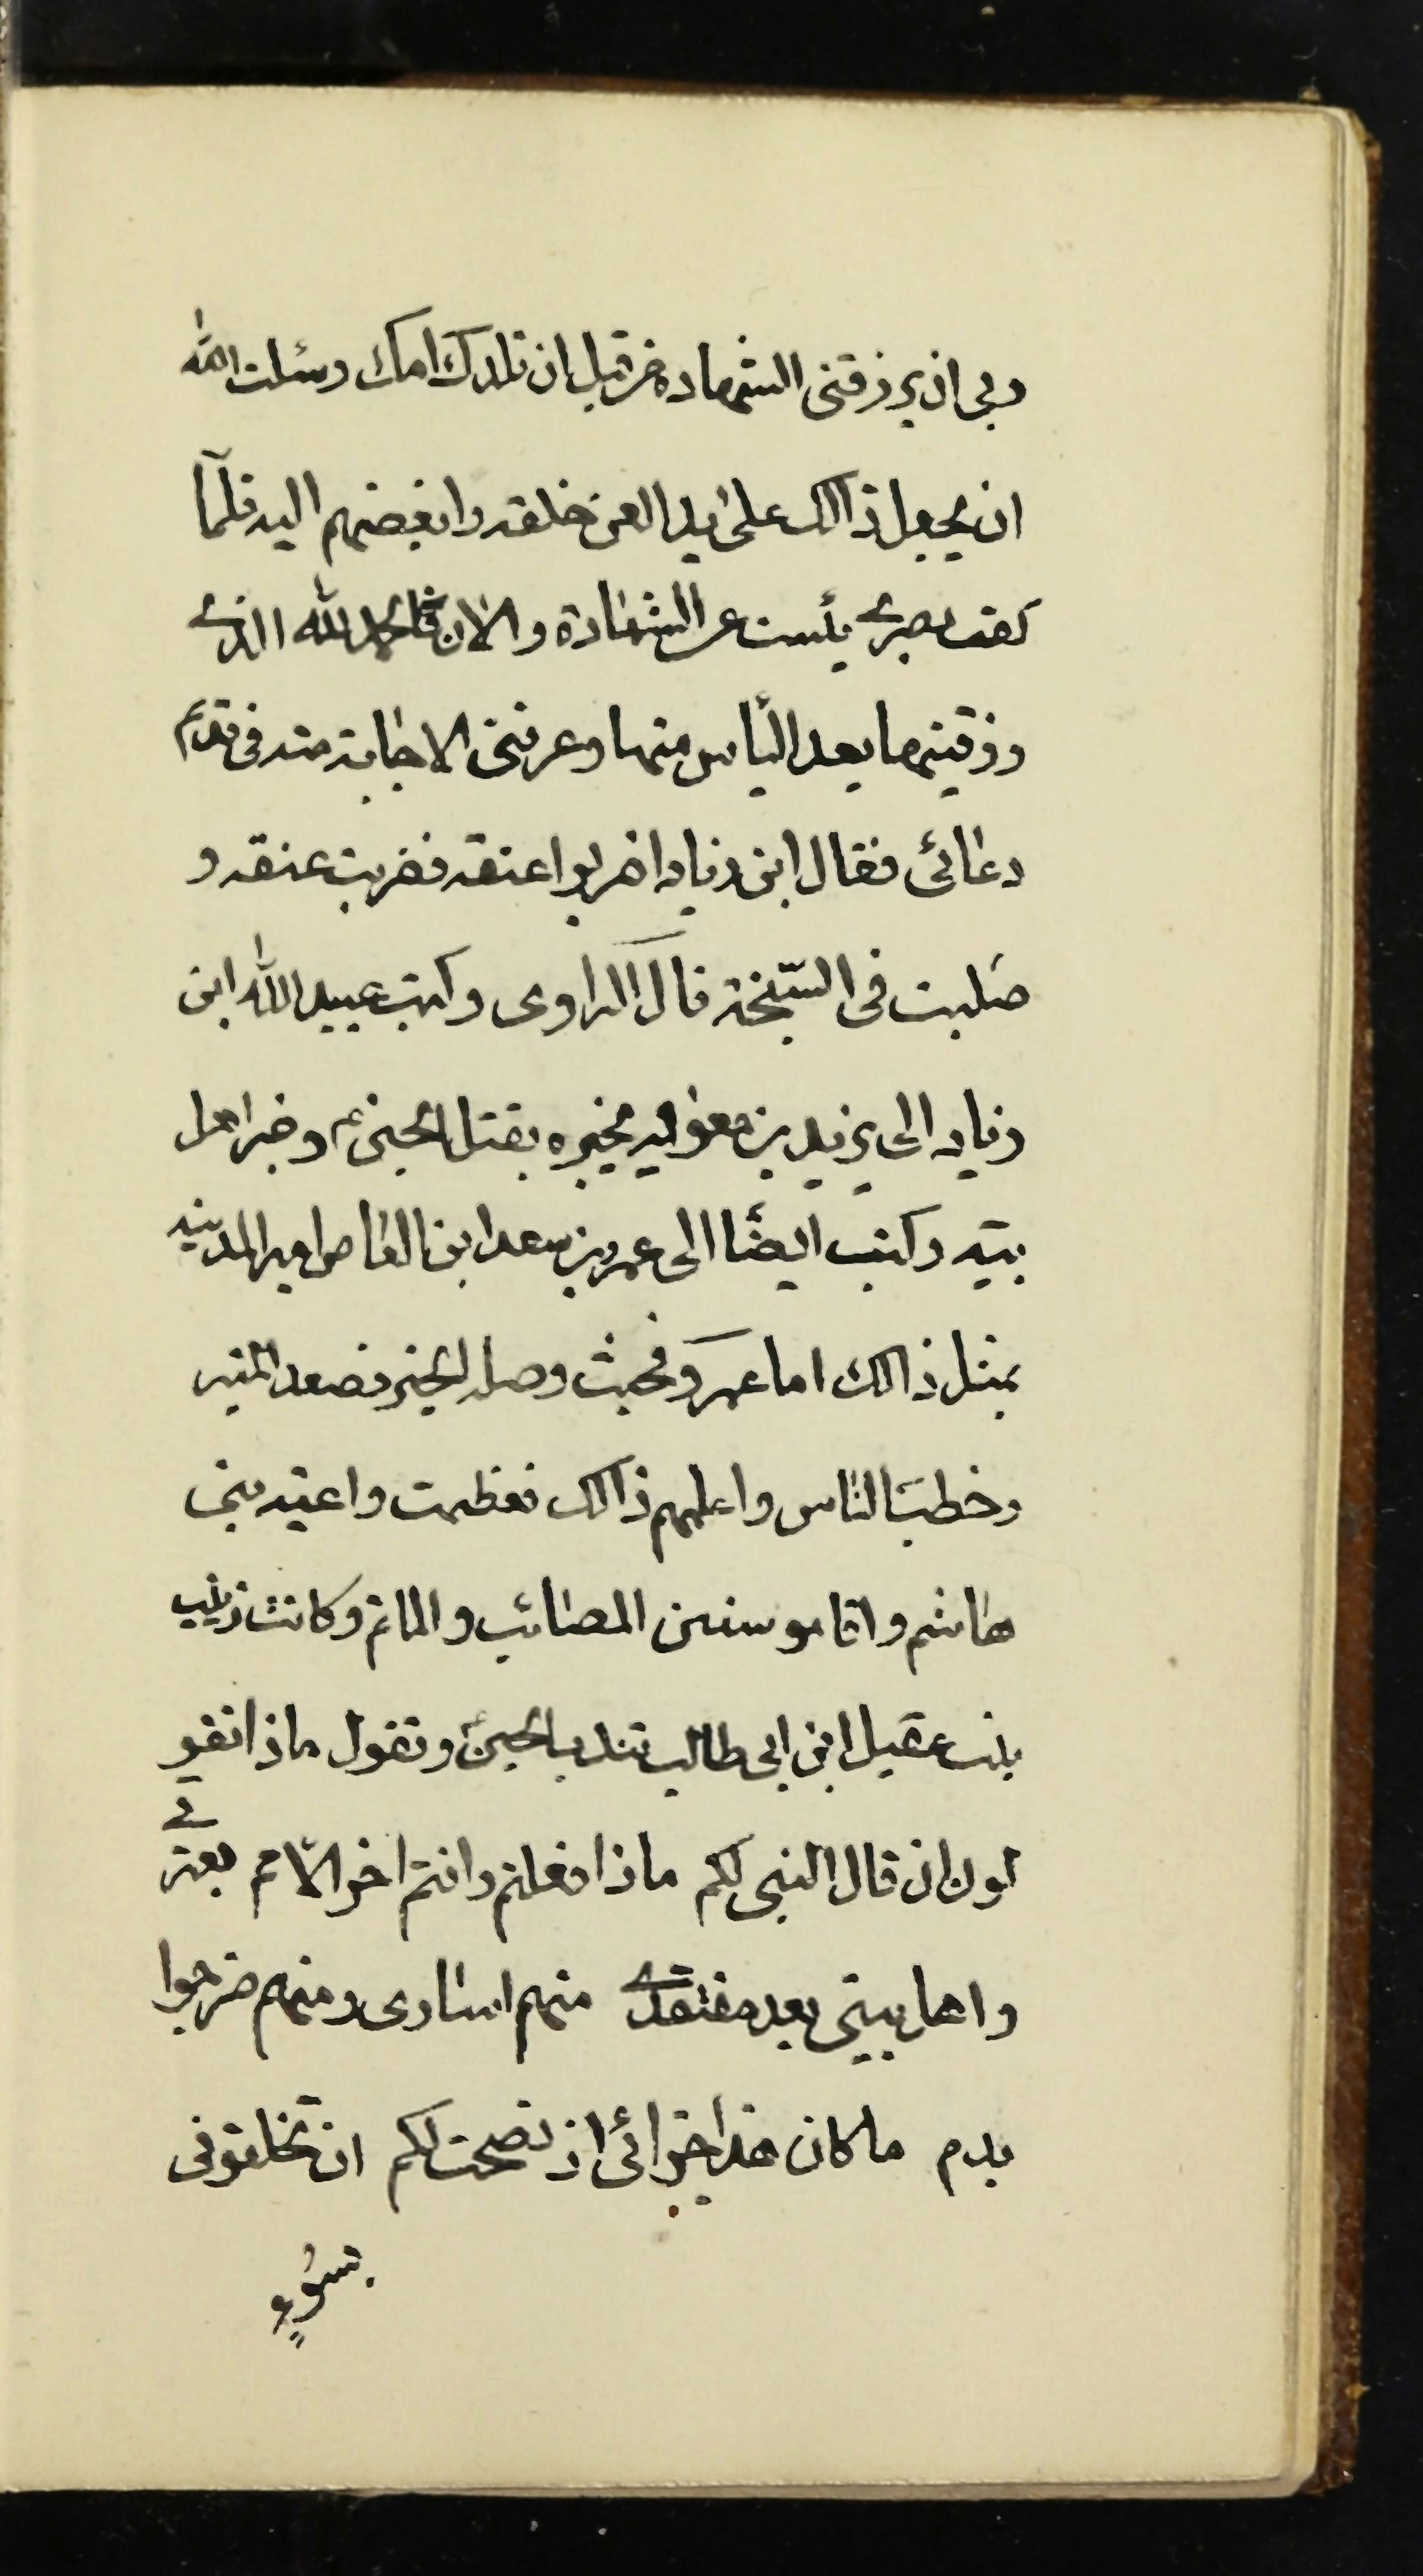 ربی ان یرزقنی الشهاده من قبل ان تلدک امک وسئلت الله
ان یجعل ذالک علی ید العن خلقه وابغضهم الیه فلمّا
کف بصری یأست عن الشهادة والان فالحمد لله الذی
رزقنیها بعد الیأس منها وعرفنی الاجابة منه فی قدیم
دعائی فقال ابن زیاد اضربوا عنقه فضربت عنقه و
صلبت فی السبخة قال الراوی وکتب عبید الله ابن
زیاد الی یزید بن معویه یخبره بقتل الحسین ع وخبر اهل
بیته وکتب ایضًا الی عمرو بن سعد ابن العاص امیر المدینه
بمثل ذالک اما عمرو فحیث وصله الخبر فصعد المنبر
وخطب الناس واعلمهم ذالک فعظمت واعیة بنی
هاشم واقامو سنن المصائب والماتم وکانت زینب
بنت عقیل ابن ابی طالب تندب الحسین ع وتقول ماذا تقو
لون ان قال النبی لکم ماذا فعلتم وانتم اخر الامم بعترتی
واهل بیتی بعد مفتقدی منهم اساری ومنهم ضرجوا
بدم ماکان هذا جزائی اذ نصحت لکم ان تخلفونی
بسوءٍ